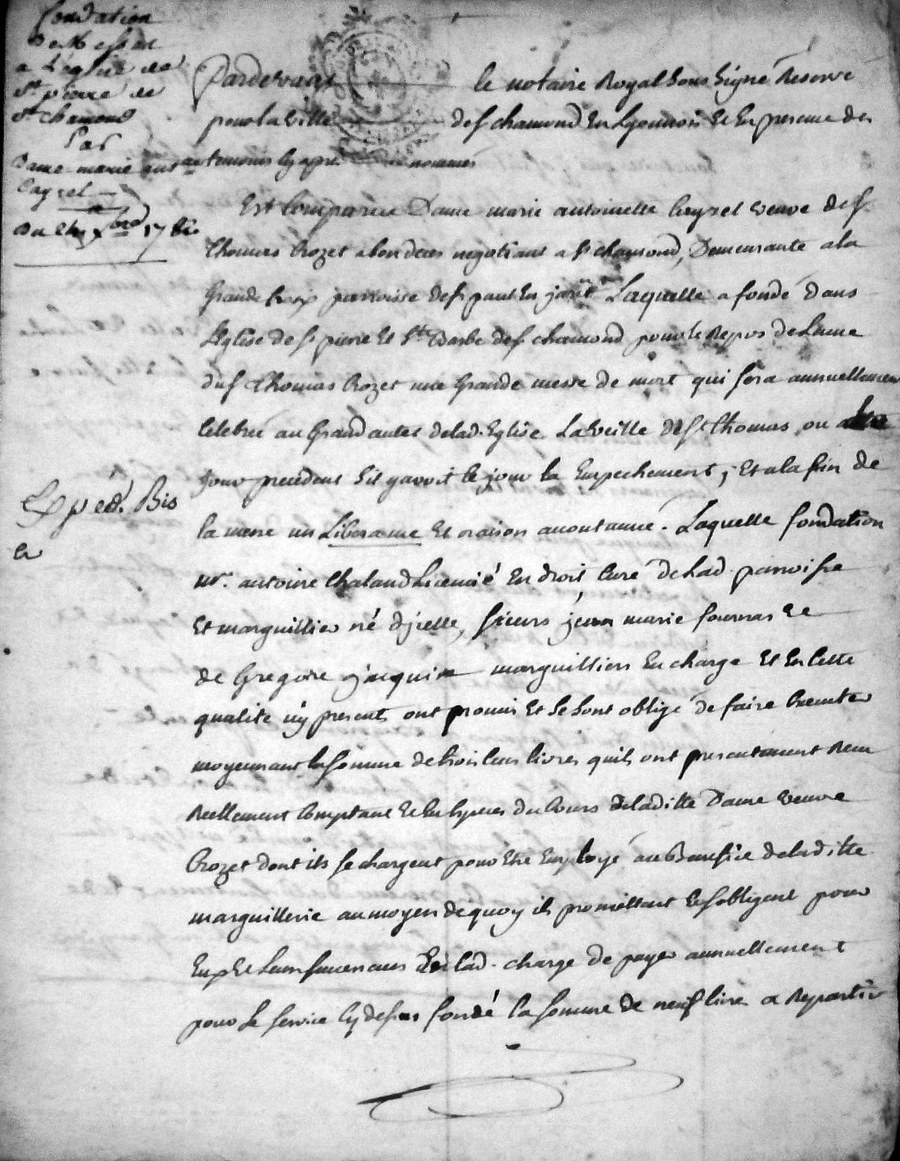 fondation
De Messe
a L'eglise de
St pierre de
St chamond
Par
Dame marie ant.
Cayzel
Du
Expéd. Bis
Pardevant le notaire Royal Sous Signé Reservé
pour la Ville de St chamond En Lyonnois Et En presence des
temoins cy aprés nommés
Est Comparue Dame marie antoinette Cayzel veuve de Sr.
Thomas Crozet negotiant a St chamond, Demeurante a la
Grande Croix parroisse de St paul En jarêt Laquelle a fondé dans
L'Eglise de St pierre Et Ste Barbe de St chamond pour le Repos de L'ame
du Sr Thomas Crozet une Grande messe de mort qui sera annuellement
Celebré au Grand autel de lad. Eglise La veille de St Thomas, ou
jour precedent S'il y avoit le jour la Empechement; Et a la fin de
la messe un Libera me Et oraison accoutumé. Laquelle fondation
Mr. antoine Chaland Licencié En droit Curé de lad. parroisse
Et marguillier né d'icelle, Sieurs jean marie fournas Et
de Gregoire jacquin marguilliers En charge Et En Cette
qualité icy presents ont promis Et Se Sont obligé de faire Executer
moyennant la Somme de trois Cens livres quils ont presentement Recu
Reellement Comptant Et En Especes du Cours de laditte Dame veuve
Crozet dont ils se chargent pour Etre Employé au Benefice de laditte
marguillerie au moyen de quoy ils promettent Et S'obligent pour
Eux Et Leurs Successeurs En lad. charge de payer annuellement
pour le Service cy dessus fondé la Somme de neuf livre a Repartir